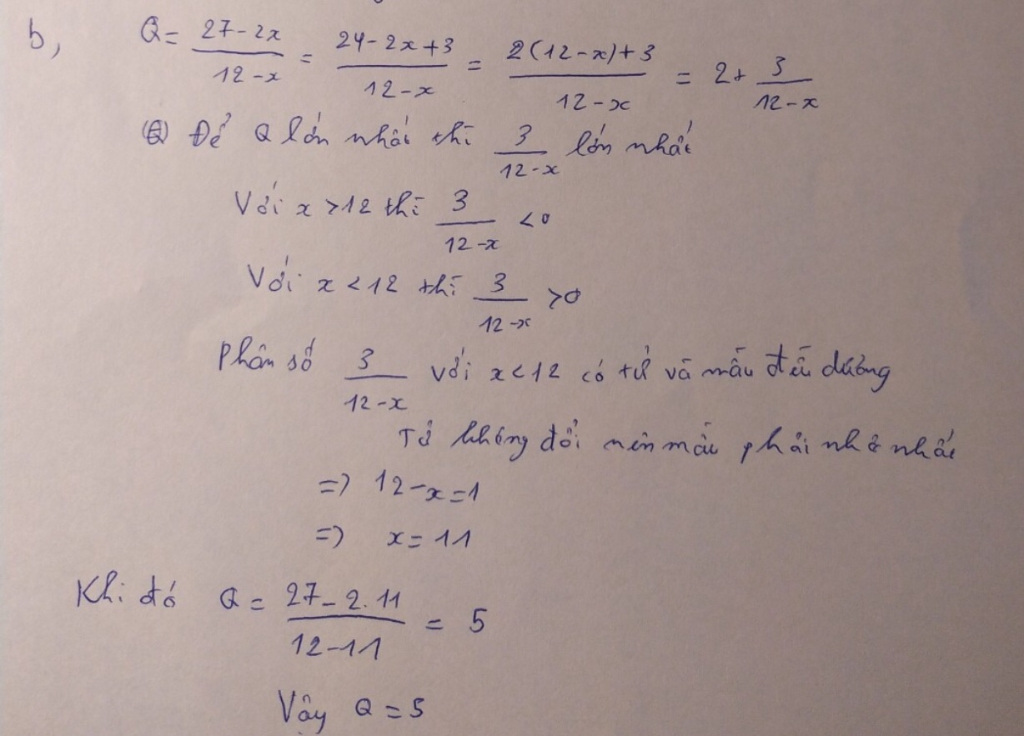 b, Q = \frac{27-2x}{12-x} = \frac{24-2x+3}{12-x} = \frac{2(12-x)+3}{12-x} = 2+ \frac{3}{12-x}
Để Q lớn nhất thì \frac{3}{12-x} lớn nhất
Với x > 12 thì \frac{3}{12-x} < 0
Với x < 12 thì \frac{3}{12-x} > 0
Phân số \frac{3}{12-x} với x < 12 có tử và mẫu đều dương
Tử không đổi nên mẫu phải nhỏ nhất
=) 12-x=1
=) x = 11
Khi đó Q = \frac{27-2.11}{12-11} = 5
Vậy Q = 5